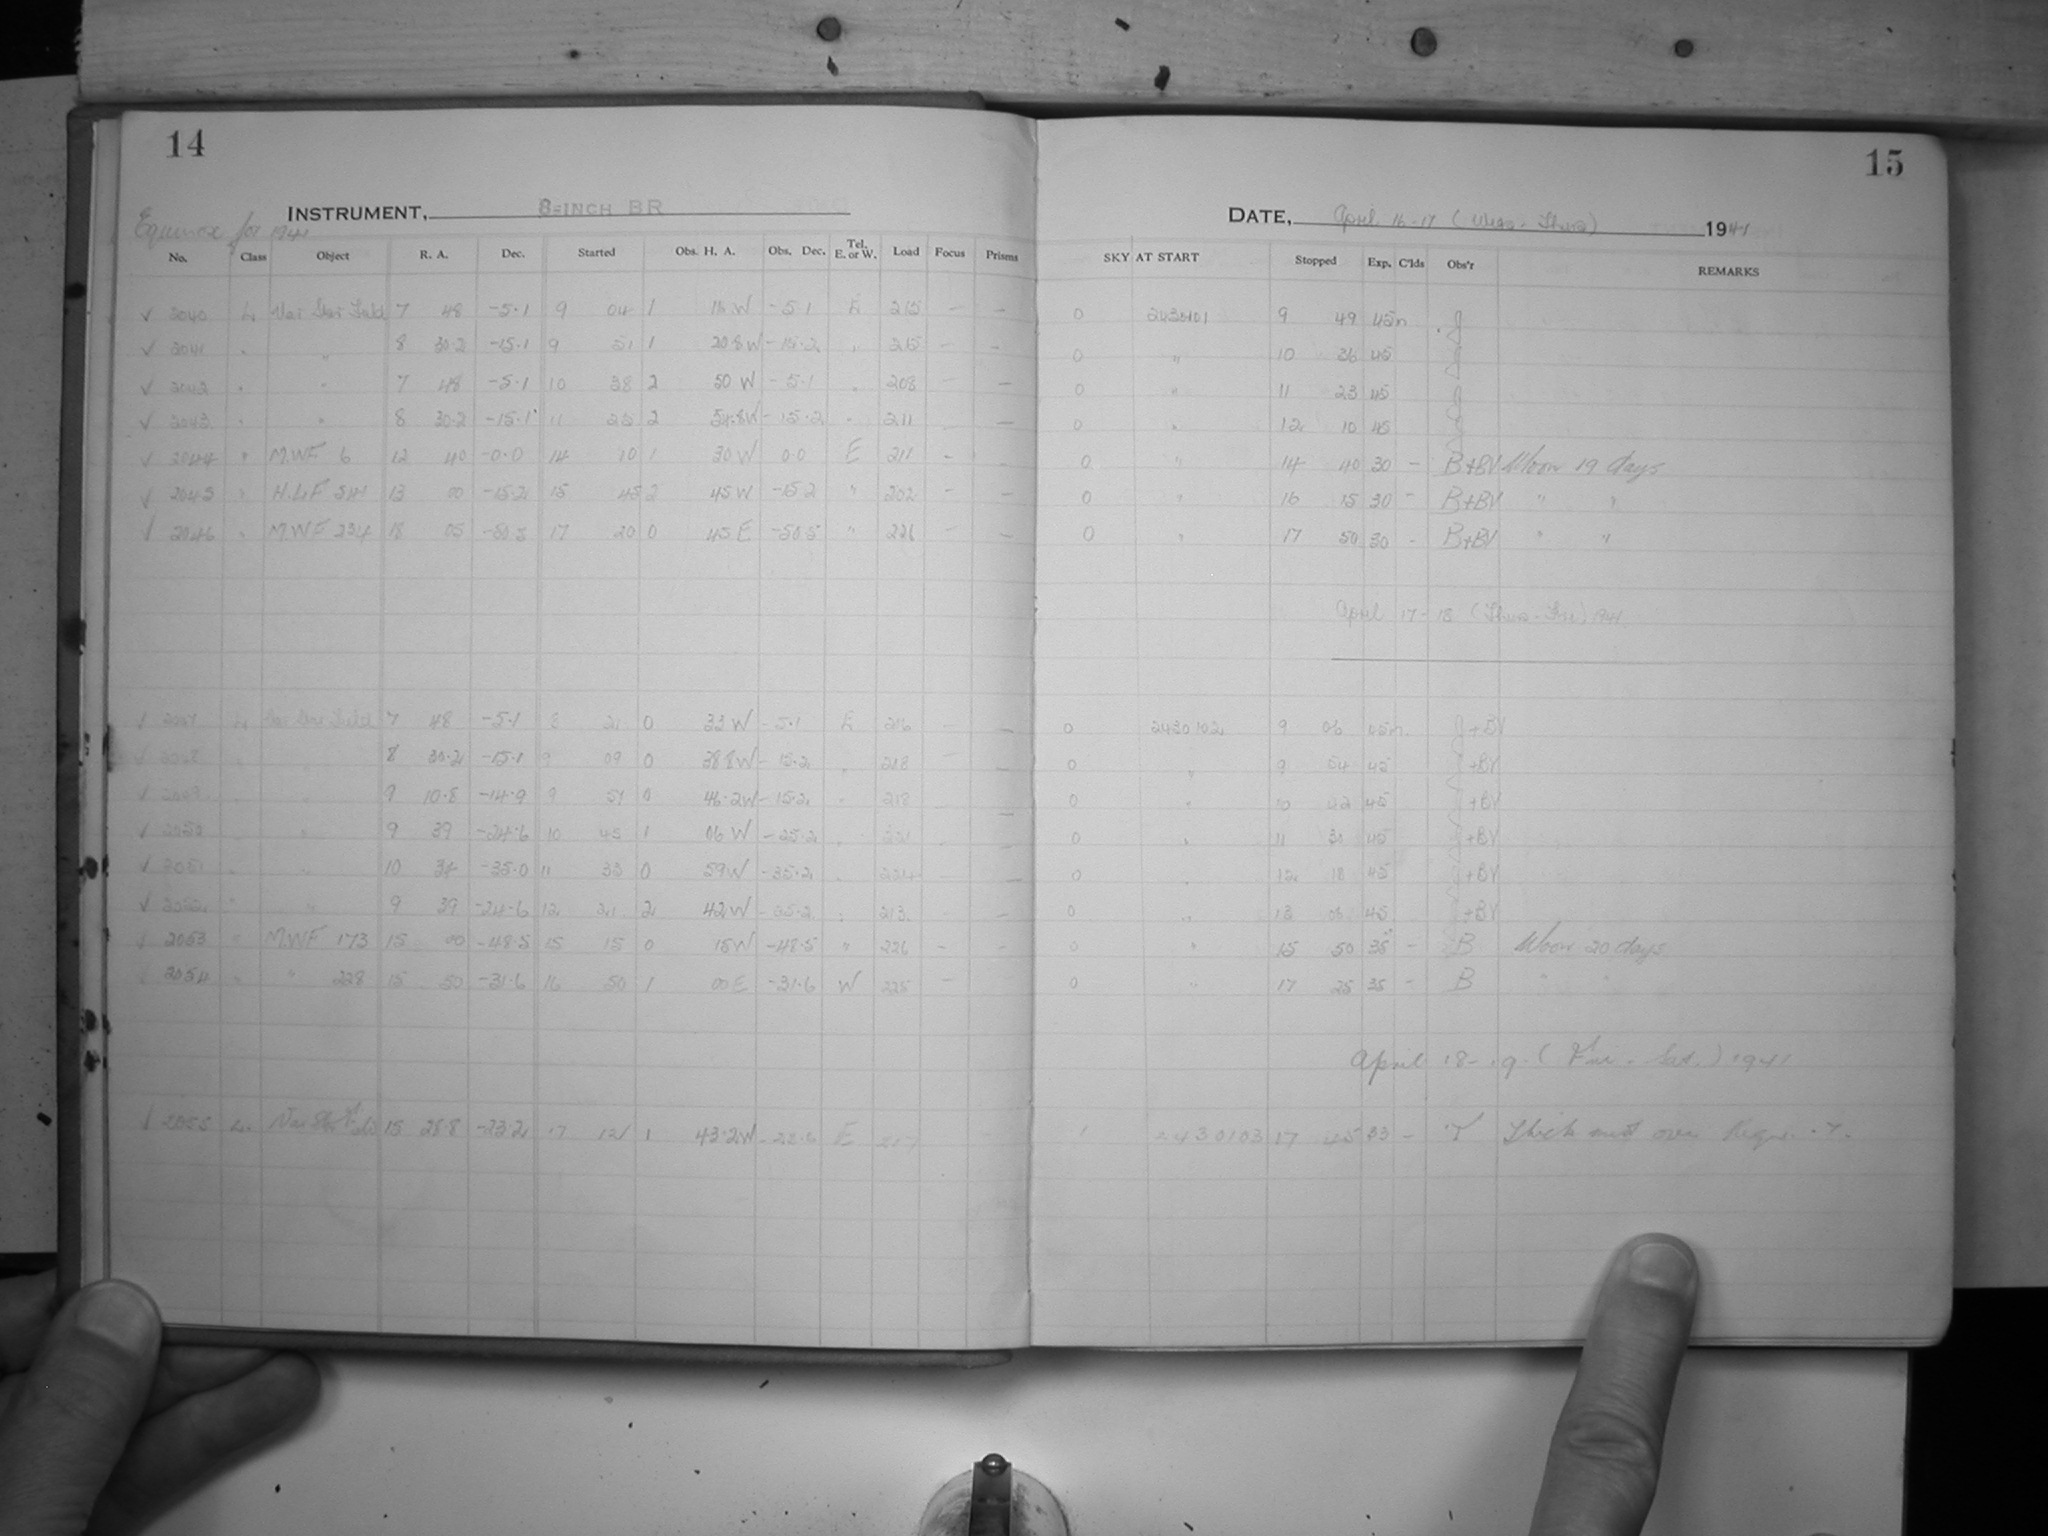 14
15
INSTRUMENT, 8-INCH BR
DATE, April 16-17 (Wed - Thurs) 1941
Equinox for 1941
No. Class Object R. A. Dec. Started Obs. H. A. Obs. Dec. Tel. E. or W. Load Focus Prisms SKY AT START Stopped Exp. C'lds Obs'r REMARKS
✓ 2040 L Var Star Field 7 48 -5.1 9 04 1 16 W -5.1 E 215 — — 0 2430101 9 49 45m J
✓ 2041 " " 8 30.2 -15.1 9 51 1 20.8 W -15.2 " 215 — — 0 " 10 36 45 J
✓ 2042 " " 7 48 -5.1 10 38 2 50 W -5.1 " 208 — — 0 " 11 23 45 J
✓ 2043 " " 8 30.2 -15.1 11 25 2 54.8 W -15.2 " 211 — — 0 " 12 10 45 J
✓ 2044 " M.W.F 6 12 40 -0.0 14 10 1 30 W 0.0 E 211 — — 0 " 14 40 30 — B+BV Moon 19 days
✓ 2045 " 13 00 -15.2 15 45 2 45 W -15.2 " 202 — — 0 " 16 15 30 — B+BV " "
✓ 2046 " M.W.F 234 18 05 -50.5 17 20 0 45 E -50.5 " 226 — — 0 " 17 50 30 — B+BV " "
April 17-18 (Thurs - Fri) 1941
✓ 2047 L Var Star Field 7 48 -5.1 8 21 0 33 W -5.1 E 216 — — 0 2430102 9 06 J+BV
✓ 2048 " 8 30.2 -15.1 9 09 0 38.8 W -15.2 " 218 — 0 " 9 54 45 J+BV
✓ 2049 " 9 10.8 -14.9 9 57 0 46.2 W -15.2 " 218 — 0 " 10 42 45 J+BV
✓ 2050 " 9 39 -24.6 10 45 1 06 W -25.2 " — 0 " 11 30 45 J+BV
✓ 2051 " 10 34 -35.0 11 33 0 59 W -35.2 " 224 — 0 " 12 18 45 J+BV
✓ 2052 " " 9 39 -24.6 12 21 2 42 W " 213 — — 0 " 13 06 45 J+BV
✓ 2053 " M.W.F 173 15 00 -48.5 15 15 0 15 W -48.5 " 226 — — 0 " 15 50 35 — B Moon 20 days
2054 " " 228 15 50 -31.6 16 50 1 00 E -31.6 W 225 — 0 " 17 25 35 — B " "
April 18-19 (Fri - Sat.) 1941
✓ 2055 L. Var Star Field 15 28.8 -23.2 17 12 1 43.2 W E 217 2430103 17 45 33 — T Thick mist over